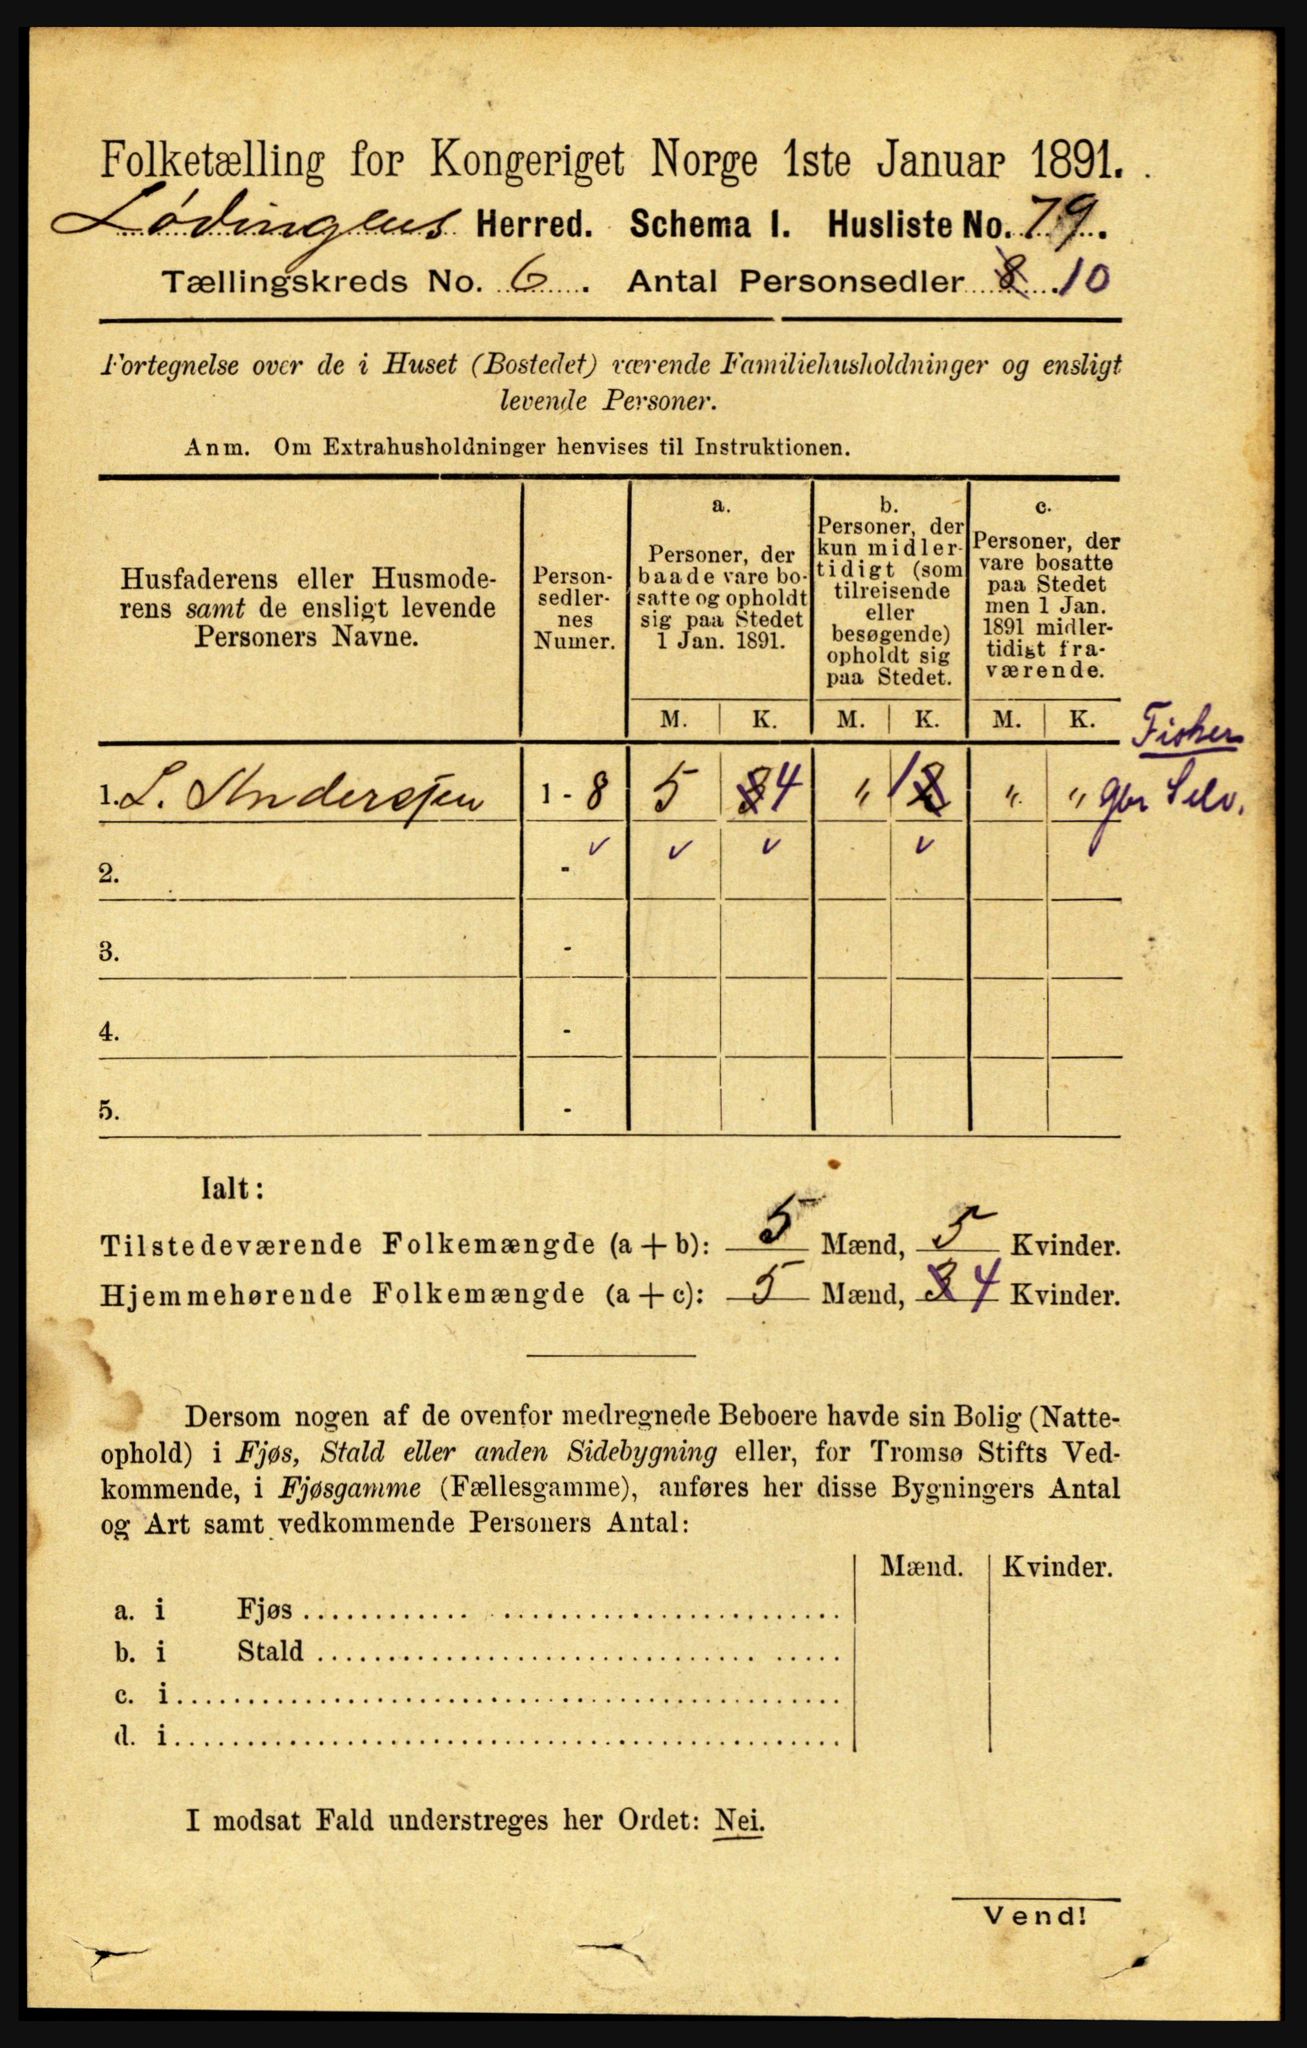 Folketælling for Kongeriget Norge 1ste Januar 1891.
Lødingens Herred. Schema I. Husliste No. 79.
Tællingskreds No. 6. Antal Personsedler 8 10
Fortegnelse over de i Huset (Bostedet) værende Familiehusholdninger og ensligt
levende Personer.
Anm. Om Extrahusholdninger henvises til Instruktionen.
Husfaderens eller Husmode-
rens samt de ensligt levende
Personers Navne.
Person-
sedler-
nes
Numer.
a.
Personer, der
baade vare bo-
satte og opholdt
sig paa Stedet
1 Jan. 1891.
b.
Personer, der
kun midler-
tidigt (som
tilreisende
eller
besøgende)
opholdt sig
paa Stedet.
c.
Personer, der
vare bosatte
paa Stedet
men 1 Jan.
1891 midler-
tidigt fra-
værende.
M. K. M. K. M. K.
Fisker
1. L. Anderssen 1 - 8 5 3 4 " 1 2 " " Gbr Selv.
2. - v v v v
3. -
4. -
5. -
Ialt:
Tilstedeværende Folkemængde (a + b): 5 Mænd, 5 Kvinder.
Hjemmehørende Folkemængde (a + c): 5 Mænd, 3 4 Kvinder.
Dersom nogen af de ovenfor medregnede Beboere havde sin Bolig (Natte-
ophold) i Fjøs, Stald eller anden Sidebygning eller, for Tromsø Stifts Ved-
kommende, i Fjøsgamme (Fællesgamme), anføres her disse Bygningers Antal
og Art samt vedkommende Personers Antal:
Mænd. Kvinder.
a. i Fjøs
b. i Stald
c. i
d. i
I modsat Fald understreges her Ordet: Nei.
Vend!